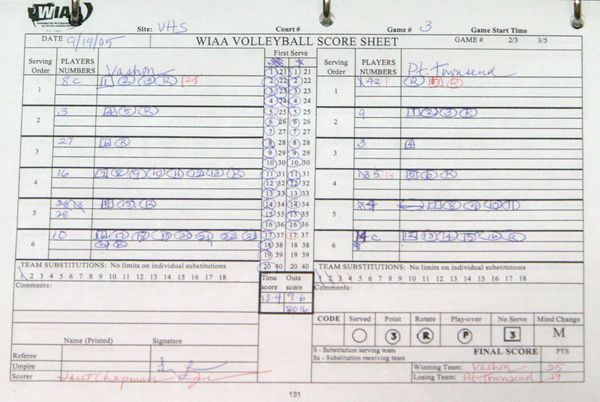 WIAA
Site: VHS Court # Game # 3 Game Start Time
DATE 9/19/05 WIAA VOLLEYBALL SCORE SHEET GAME # 2/3 3/5
First Serve
Serving Order PLAYERS NUMBERS Vashon
Serving Order PLAYERS NUMBERS Pt. Townsend
1 8 C 1 2 3 R 25
1 42 R R
2 3 4 5 R
2 9 1 2 3 R
3 27 6 R
3 3 4
4 16 7 8 9 10 11 12 13 R
4 35 5 6 R
5 28
28 14 15 R
5 7 8 9 10 11
6 10
6 C 12 13 14 15 16 R
1 21 1 21
2 22 2 22
3 23 3 23
4 24 4 24
5 25 5 25
6 26 6 26
7 27 7 27
8 28 8 28
9 29 9 29
10 30 10 30
11 31 11 31
12 32 12 32
13 33 13 33
14 34 14 34
15 35 15 35
16 36 16 36
17 37 17 37
18 38 18 38
19 39 19 39
20 40 20 40
TEAM SUBSTITUTIONS: No limits on individual substitutions
1 2 3 4 5 6 7 8 9 10 11 12 13 14 15 16 17 18
Comments:
Time Outs
score score
13-9 9-6
20-16
TEAM SUBSTITUTIONS: No limits on individual substitutions
1 2 3 4 5 6 7 8 9 10 11 12 13 14 15 16 17 18
Comments:
CODE Served Point Rotate Play-over No Serve Mind Change
3 R P 3 M
S - Substitution serving team
Sx - Substitution receiving team
FINAL SCORE PTS
Winning Team: Vashon 25
Losing Team: Pt. Townsend 17
Name (Printed) Signature
Referee
Umpire
Scorer Chapman
131